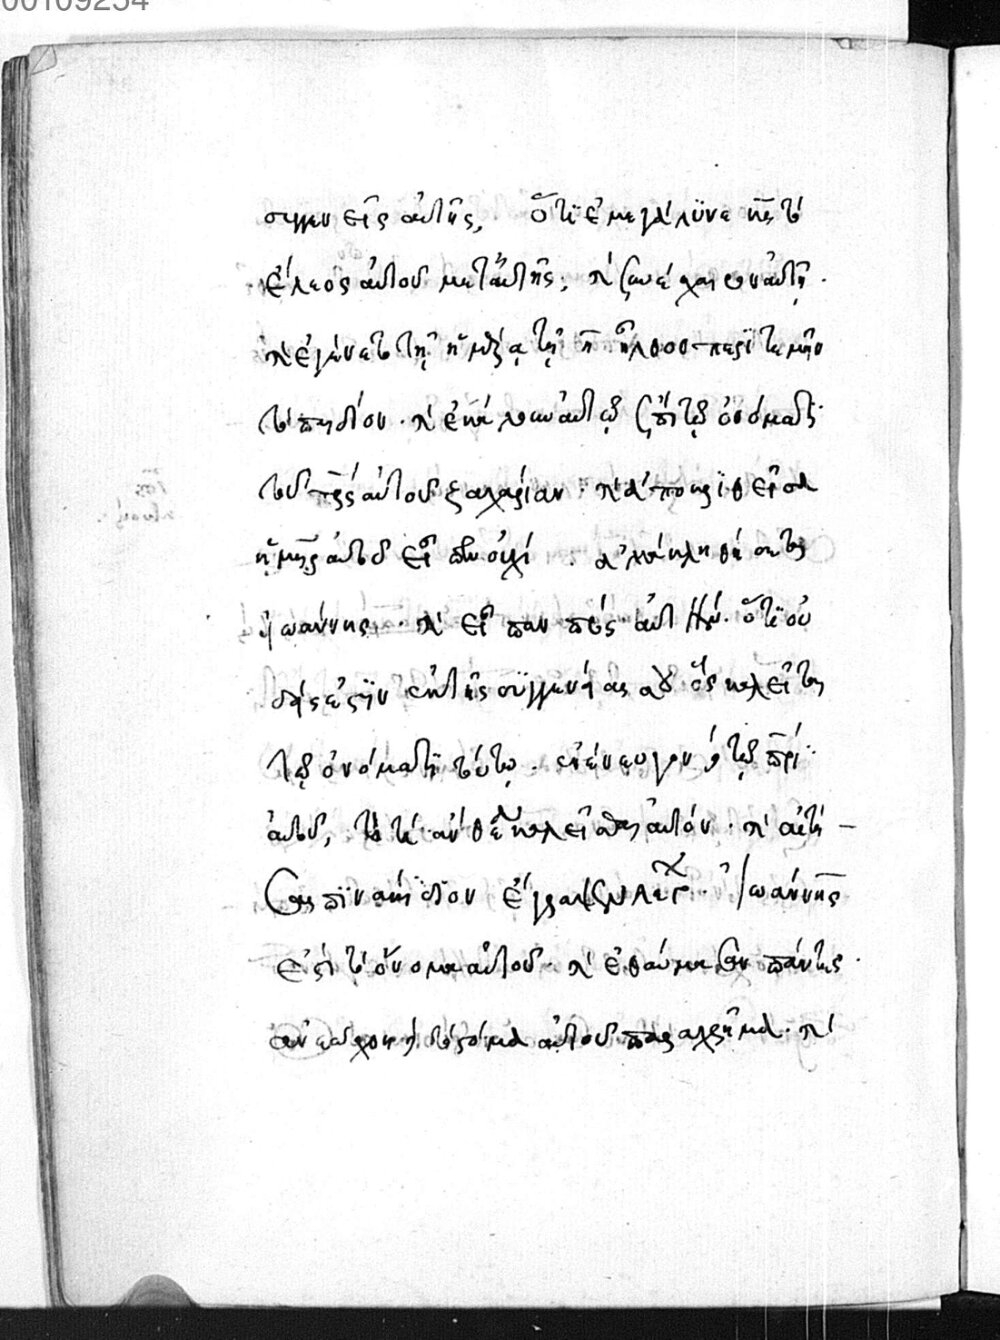 00109254
συγγενεῖς αὐτῆς, ὅτι ἐμεγάλυνε κς τὸ
ἔλεος αὐτοῦ μετ' αὐτῆς, κ συνέχαιρον αὐτῇ.
κ ἐγένετο τῇ ἡμέρᾳ τῇ η ἦλθον περιτεμεῖν
τὸ παιδίον. κ ἐκάλουν αὐτὸ ἐπὶ τῷ ὀνόματι
τοῦ πρς αὐτοῦ ζαχαρίαν. κ ἀποκριθεῖσα
ἡ μηρ αὐτοῦ εἶπεν οὐχί. ἀλλὰ κληθήσεται
ἰωάννης. κ εἶπον πρὸς αὐτήν. ὅτι οὐ
δείς ἐστιν ἐν τῇ συγγενείᾳ σου ὃς καλεῖται
τῷ ὀνόματι τούτῳ. ἐνένευον δὲ τῷ πρι
αὐτοῦ, τὸ τί ἂν θέλοι καλεῖσθαι αὐτόν. κ αἰτή
σας πινακίδιον ἔγραψεν λέγων. ἰωάννης
ἐστὶ τὸ ὄνομα αὐτοῦ. κ ἐθαύμασαν πάντες.
ἀνεῴχθη δὲ τὸ στόμα αὐτοῦ παραχρῆμα. κ